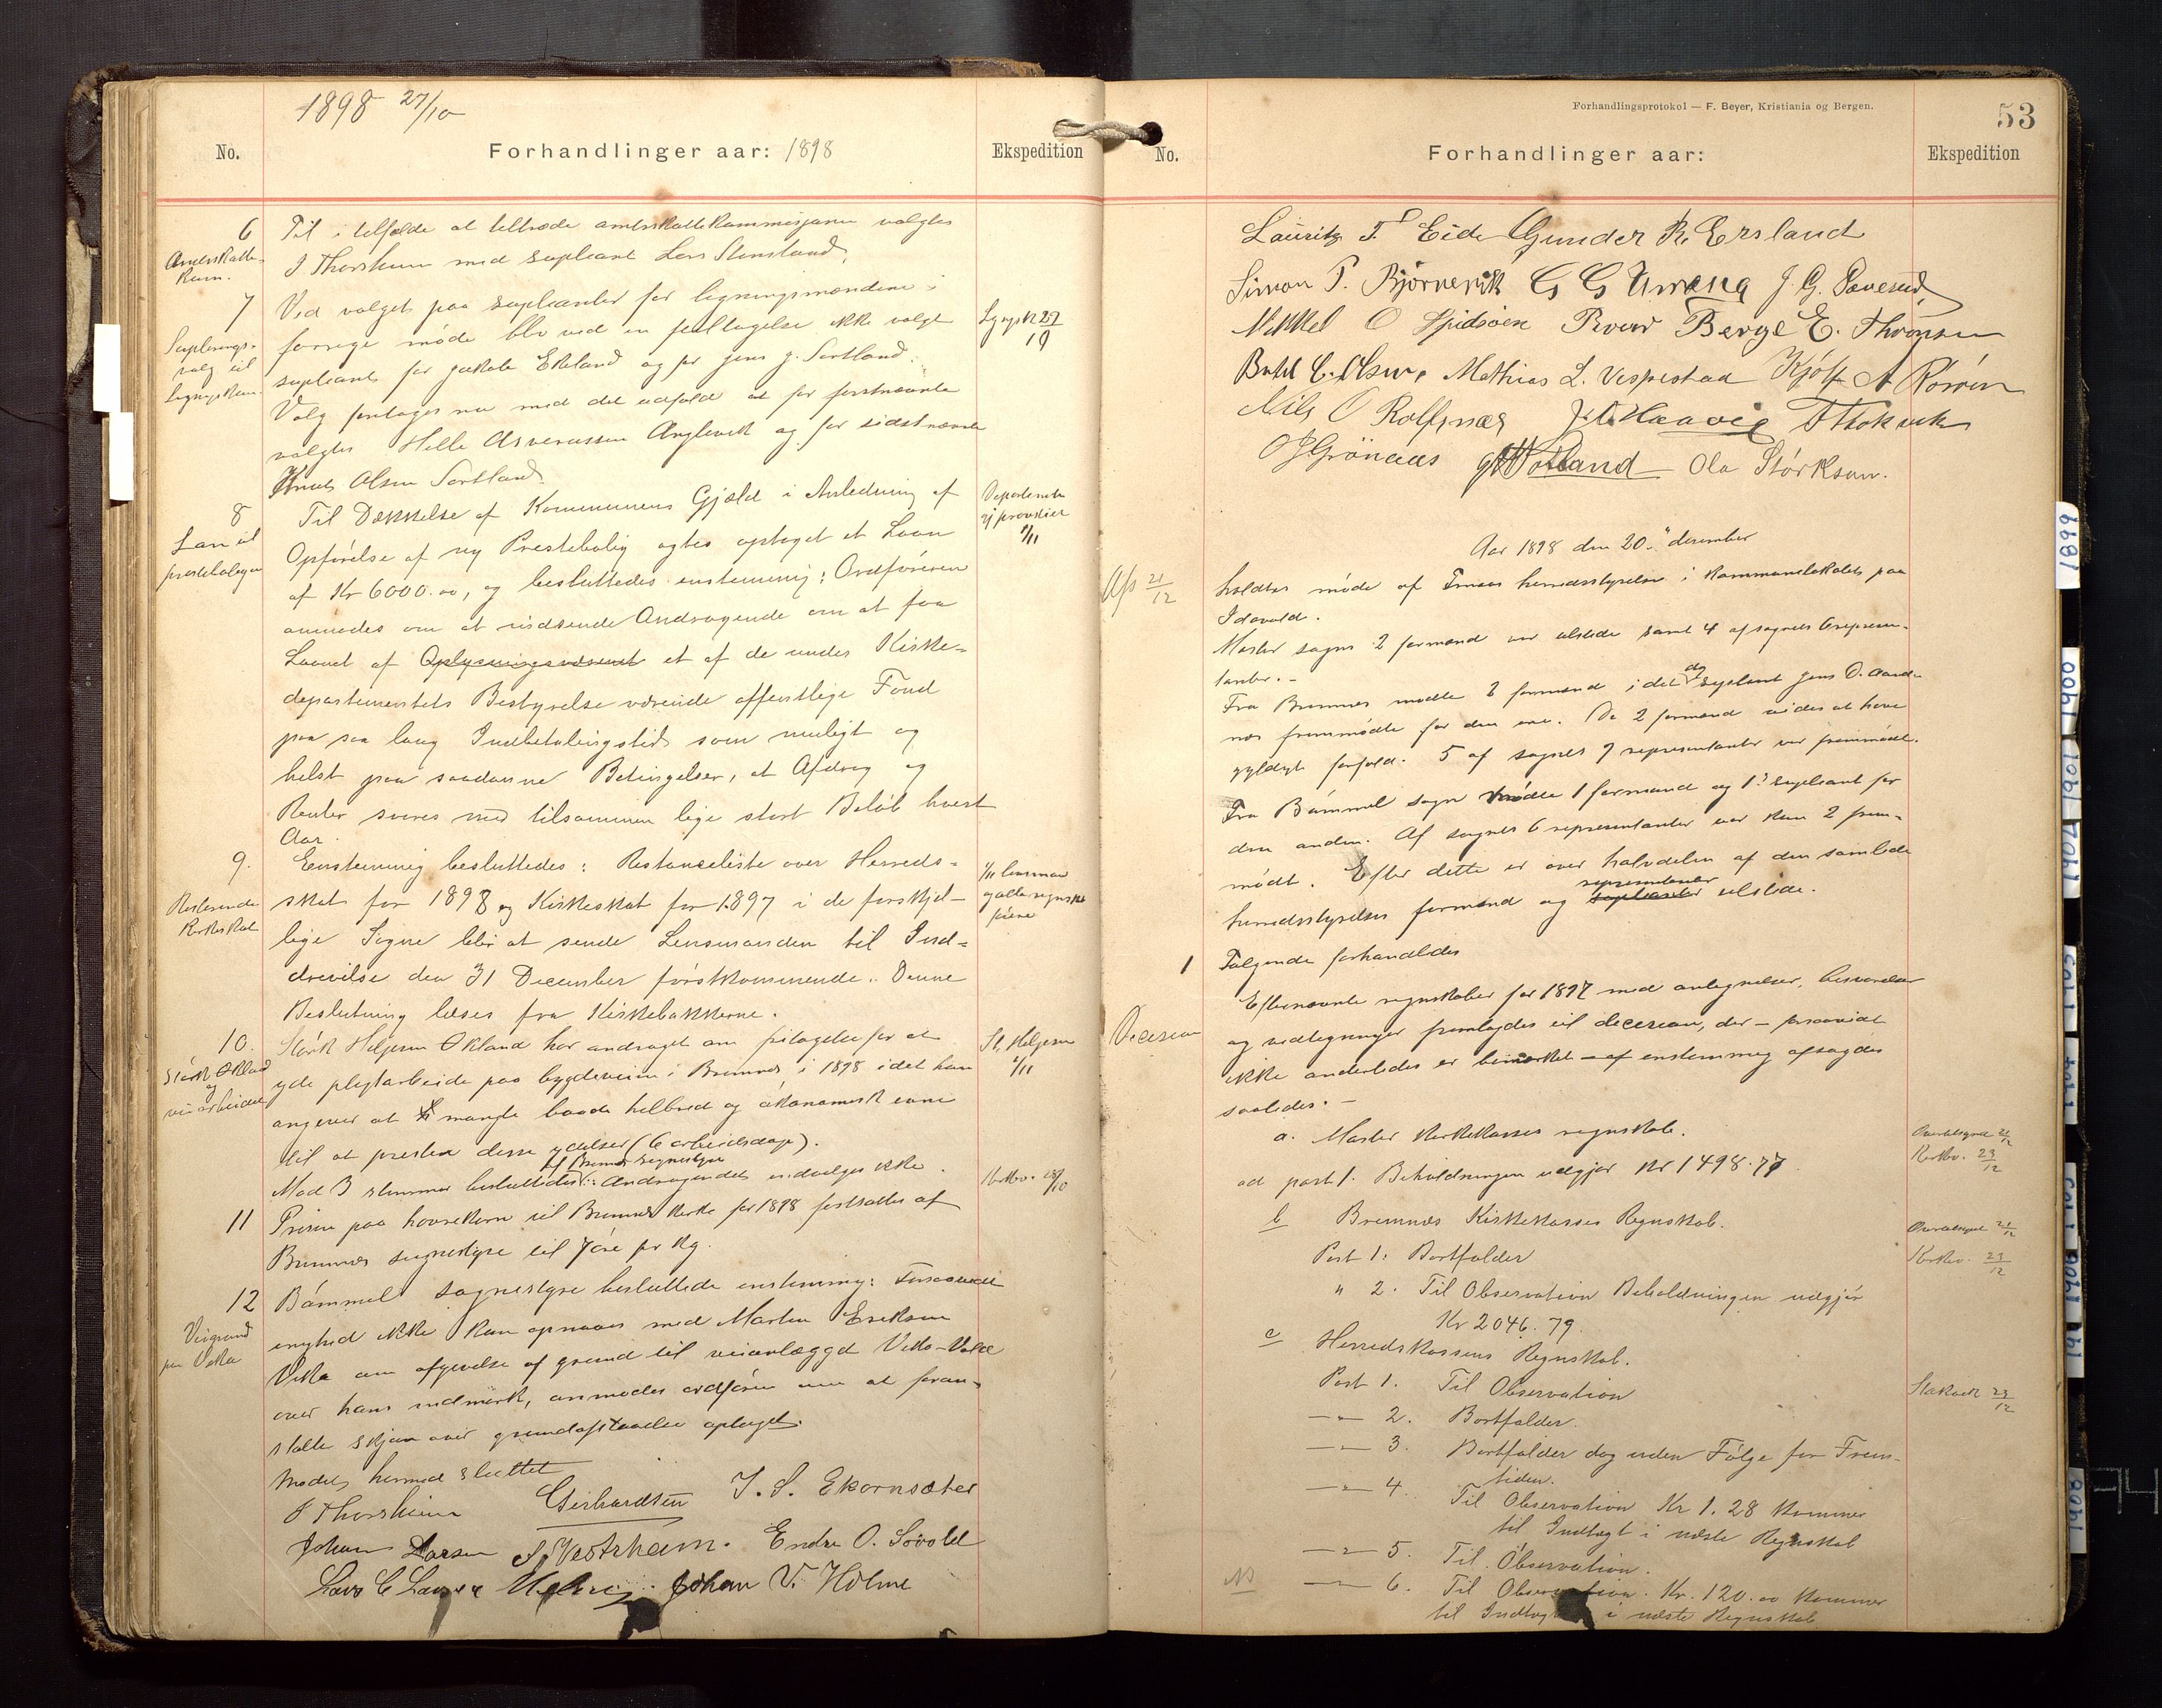 1898 27/10
No.
Forhandlinger aar: 1898
Ekspedition
6
Til i tilfælde at tiltræde amtsskattekommisjonen valgtes
J Thorsheim med supleant Lars Stensland.
7
Ved valget paa supleanter for ligningsmændene i
Supleringsvalg til
forrige møde blev ved en feiltagelse ikke valgt
supleant for Jakob Ekeland og for Jens J. Sortland.
Valg foretages nu med det udfald at for førstnævnte
valgtes Helle Asmerassen Anglevik og for sidstnævnte
Knut Olsen Sortland.
8
Laan til
prestebolig
Til Dækkelse af Kommunens Gjæld i Anledning af
Opførelse af ny Prestebolig agtes optaget et Laan
af Kr 6000.00, og besluttedes enstemmig: Ordføreren
anmodes om at indsende Andragende om at faa
Laanet af Oplysningsvæsenet et af de under Kirke-
departementets Bestyrelse værende offentlige Fond
paa saa lang Indbetalingstid som muligt og
helst paa saadanne Betingelser, at Afdrag og
Renter svares med tilsammen lige stort Beløb hvert
Aar.
9.
Resterende
Kirkeskat
Enstemmig besluttedes: Restanceliste over Herreds-
skat for 1898 og Kirkeskat for 1897 i de forskjel-
lige Sogne blir at sende Lensmanden til Ind-
drivelse den 31 December førstkommende. Denne
Beslutning læses fra Kirkebakkerne.
1/11 lensmand
10.
Størk Økland
og
veiarbeidet
Størk Helgesen Økland har andraget om fritagelse for at
yde pligtarbeide paa bygdeveiene i Bremnes i 1898 idet han
angiver at mangle baade helbred og økonomisk evne
til at prestere disse ydelser (6 arbeidsdage).
af Bremnes sognestyre
Mod 3 stemmer besluttedes: Andragendet indvilges ikke.
St. Helgesen
1/11
11
Prisen paa havrekorn til Bremnes kirke for 1898 fastsattes af
Bremnes sognestyre til 7 øre pr kg.
12
Veigrund
paa Vika
Bømmel sognestyre besluttede enstemmig: Forsaavidt
enighed ikke kan opnaaes med Marten Eriksen
Vika om afgivelse af grund til veianlægget Vika-Vold
over hans indmark, anmodes ordføreren om at foran-
stalte skjøn over grundafstaaelse optaget.
Mødet hermed sluttet
J Thorsheim Gerhardsen J. S. Ekornsæter
Johan Larsen S. Vestrheim. Endre O. Søvold
Lars C Larsen Johan V. Holme
Forhandlingsprotokol — F. Beyer, Kristiania og Bergen.
53
No.
Forhandlinger aar:
Ekspedition
Lauritz T. Eide Gunder R. Ersland
Simon P. Bjørnevik G G Urrang
Mikkel O Spidsøen Berge E. Thronsen
Mathias L. Vespestad Kjøl A Rørøen
Nils O Rolfsnæs
O J Grönaas Ola Størksen.
Aar 1898 den 20. december
21/12
holdtes møde af Finaas herredsstyrelse i kommunelokalet paa
Idavold.
Moster sogns 2 formænd var tilstede samt 4 af sognets 6 represen-
tanter.-
Fra Bremnes mødte 2 formænd, idet supleant Jens O. Aard-
næs fremmødte for den ene. De 2 formænd vides at have
gyldigt forfald. 5 af sognets 9 representanter var fremmødt.
Fra Bømmel sogn mødte 1 formand og 1 supleant for
den anden. Af sognets 6 representanter var kun 2 frem-
mødt. Efter dette er over halvdelen af den samlede
herredsstyrelses formænd og supleanter representanter tilstede.
1
Følgende forhandledes
Decision
Efternævnte regnskaber for 1897 med antegnelser, besvarelser
og vedtegninger fremlagdes til decision, der – forsaavidt
ikke anderledes er bemærket – af enstemmig afsagdes
saaledes: –
a. Moster kirkekasses regnskab.
ad post 1. Beholdningen udgjør Kr 1498.77.
21/12
23/12
b
Bremnæs Kirkekasses Regnskab.
Post 1. Bortfalder
" 2. Til Observation Beholdningen udgjør
Kr 2046.79.
21/12
23/12
c
Herredskassens Regnskab.
Post 1. Til Observation
–"– 2. Bortfalder.
–"– 3. Bortfalder dog uden Følge for Frem-
tiden.
–"– 4. Til Observation Kr 1.28 kommer
til Indtægt i næste Regnskab
–"– 5. Til Observation.
–"– 6. Til Observation. Kr. 120.00 kommer
til Indtægt i næste Regnskab
23/12
1899
1900
1901
1902
1903
1904
1905
1906
1907
1908